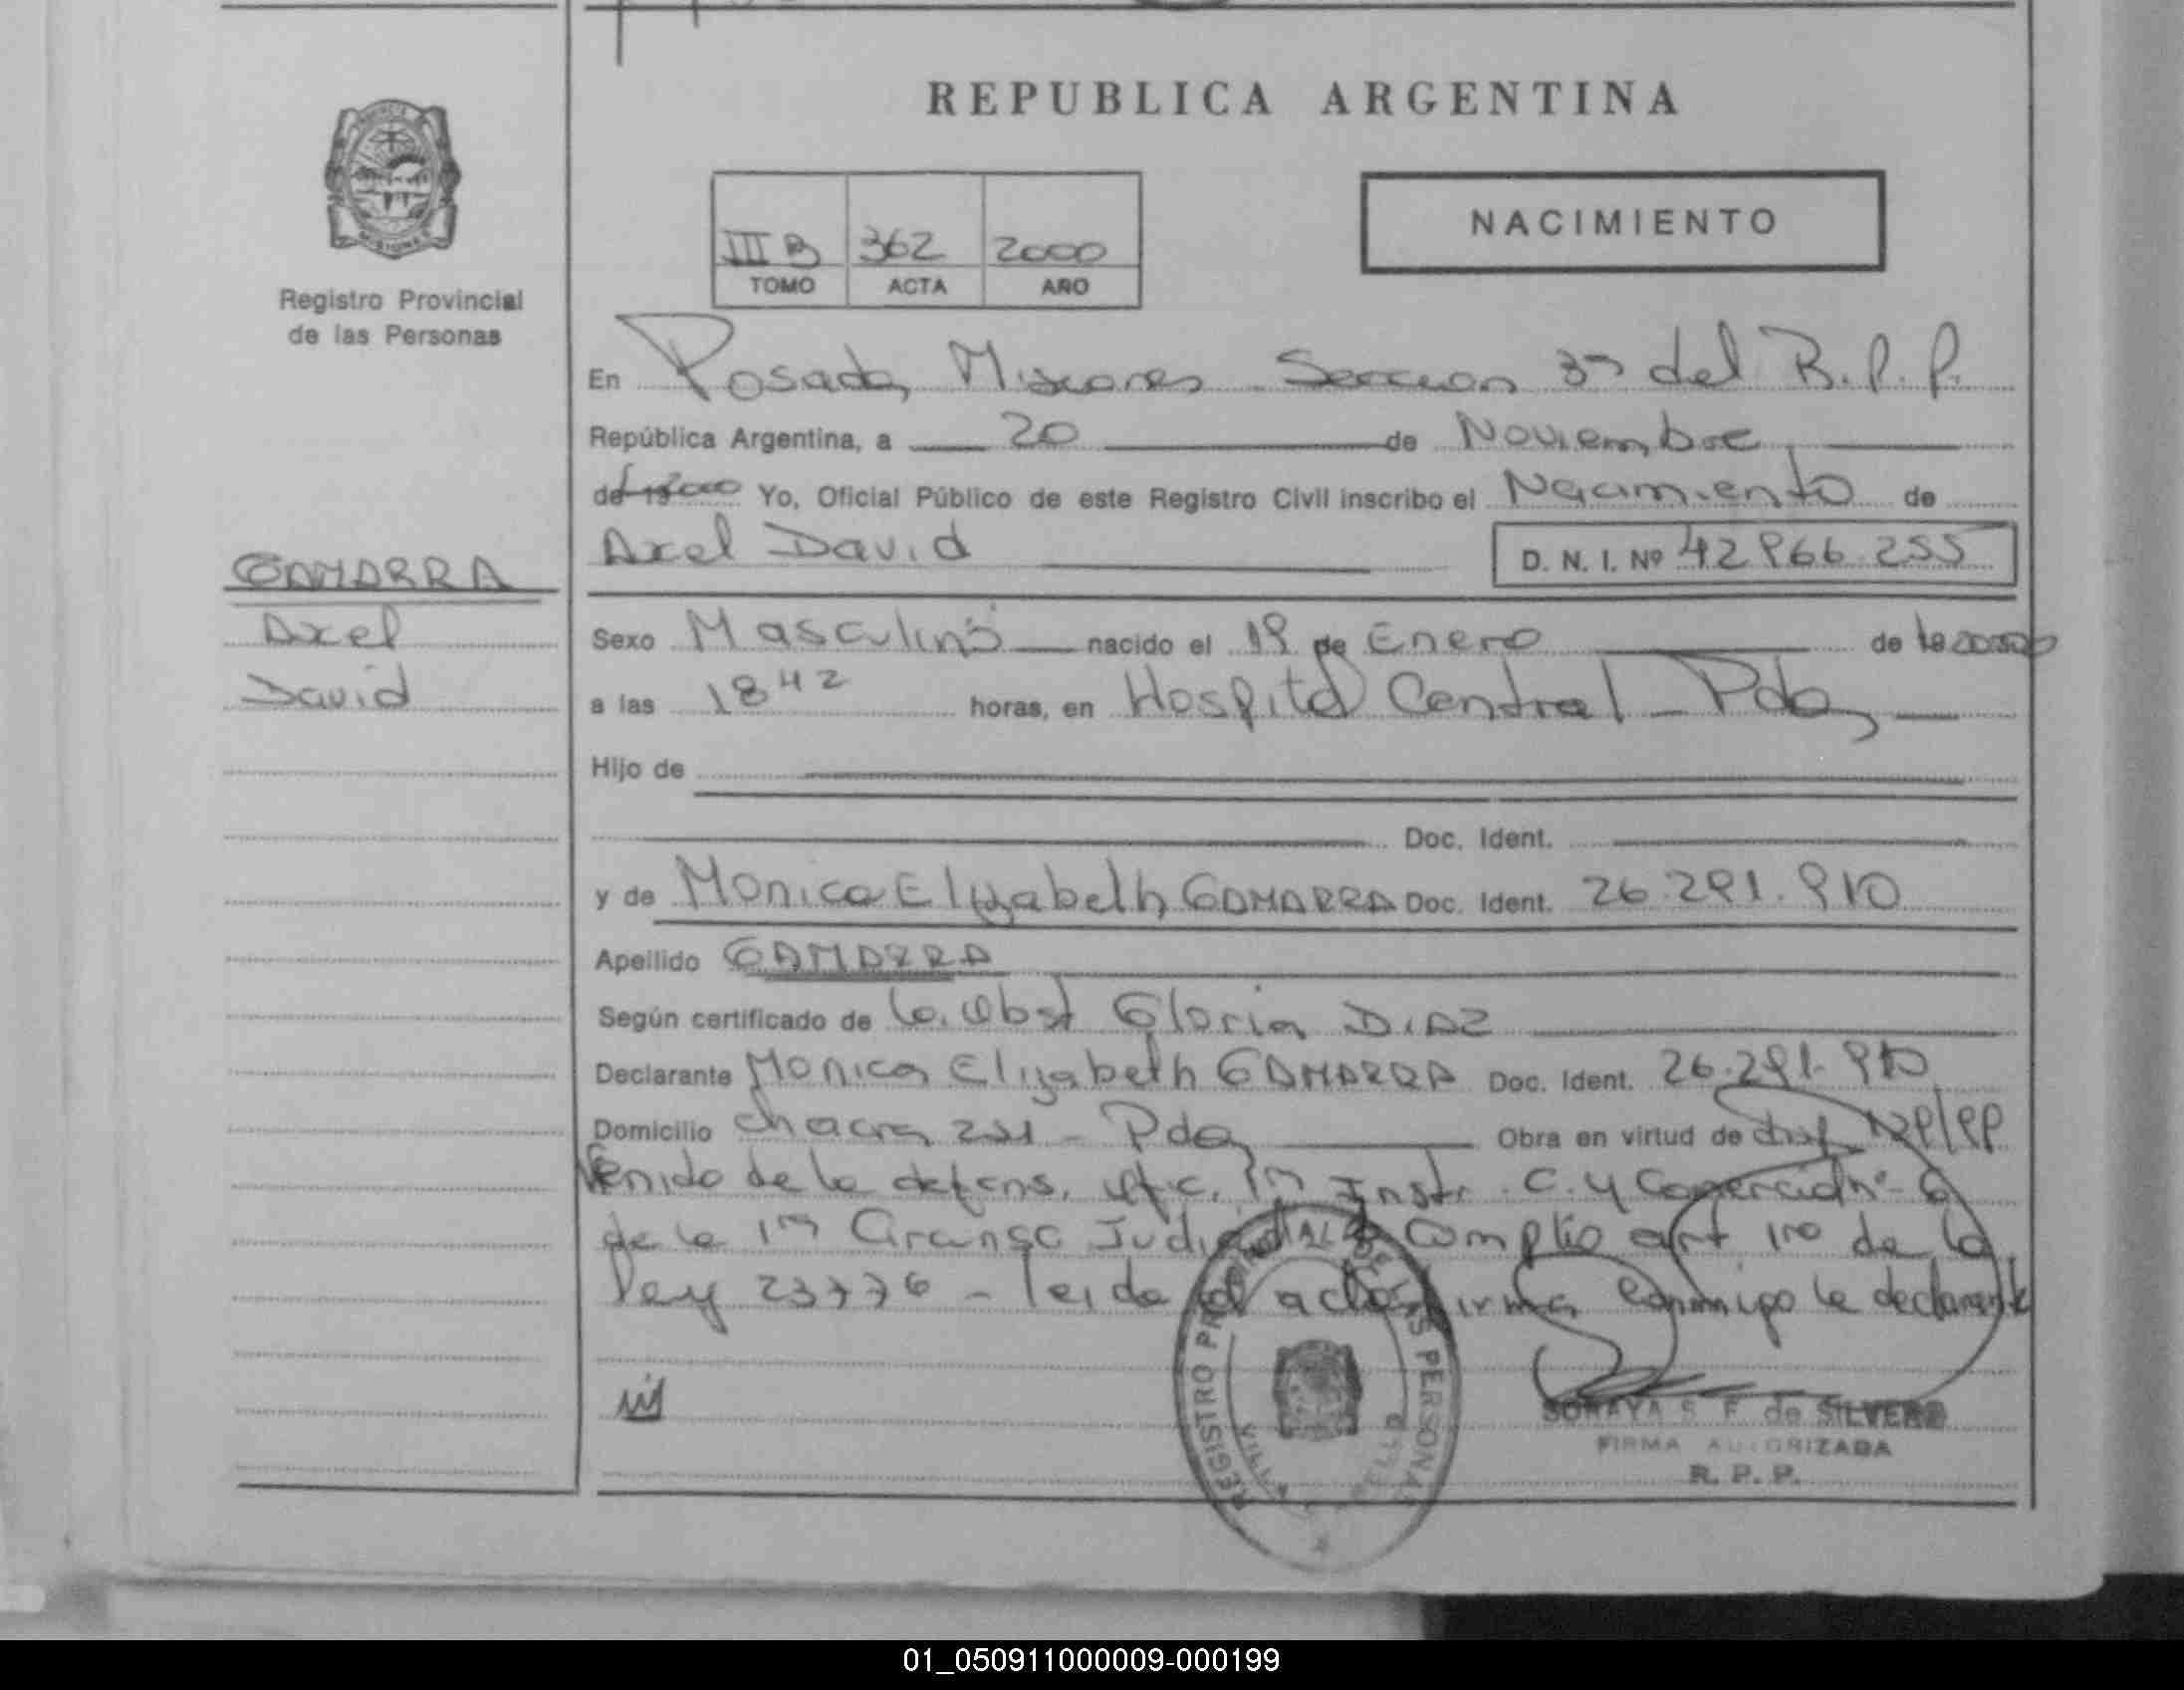 REPUBLICA ARGENTINA
NACIMIENTO
III B 362 2000
TOMO ACTA AÑO
Registro Provincial
de las Personas
En Posadas Misiones Seccion 3ª del R.P.P.
República Argentina, a 20 de Noviembre
de 2000 Yo, Oficial Público de este Registro Civil inscribo el Nacimiento de
Axel David D. N. I. Nº 42.966.255
GAMARRA
Axel
David
Sexo Masculino nacido el 19 de Enero de 2000
a las 18 42 horas, en Hospital Central - Pdas
Hijo de
Doc. Ident.
y de Monica Elizabeth GAMARRA Doc. Ident. 26.291.910
Apellido GAMARRA
Según certificado de la Obst Gloria DIAZ
Declarante Monica Elizabeth GAMARRA Doc. Ident. 26.291.910
Domicilio chacra 231 - Pdas Obra en virtud de
de la defens. ofc. 1ª Instr. C. y Comercial nº 6
de la 1ª Circunsc Judicial Cumplio art 1ro de la
ley 23776 - leida el acta firma conmigo la declarante
REGISTRO PROVINCIAL DE LAS PERSONAS
VILLA
SORAYA S. F. de SILVERO
FIRMA AUTORIZADA
R. P. P.
01_050911000009-000199